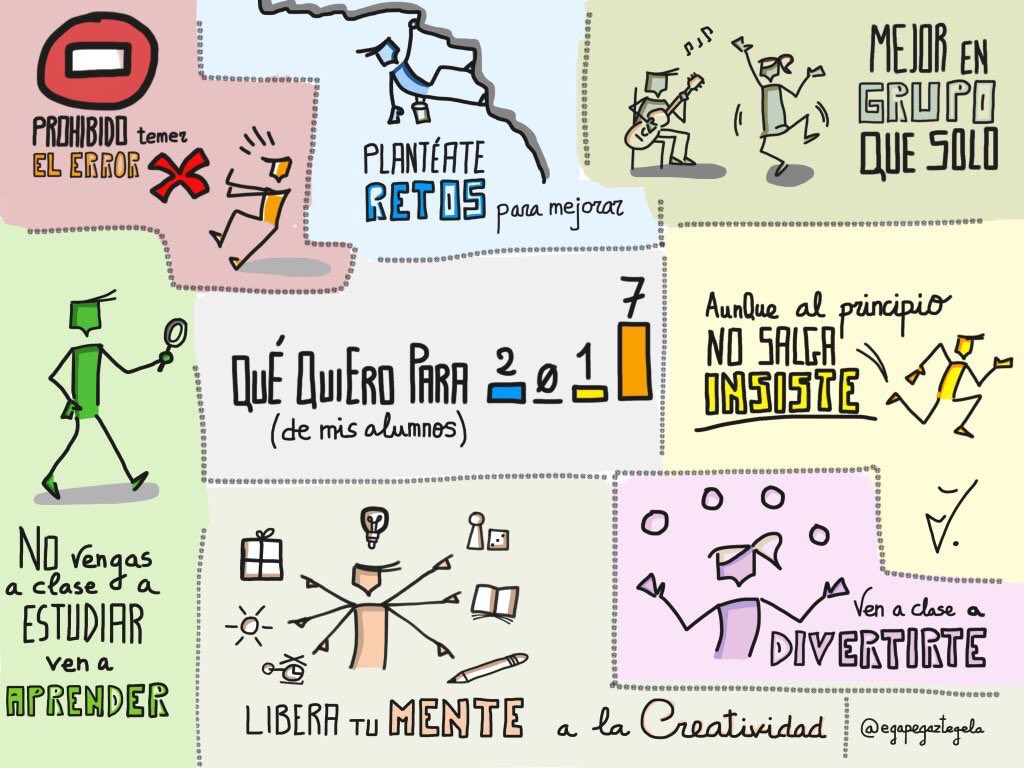 PROHIBIDO temer
EL ERROR
PLANTÉATE
RETOS para mejorar
MEJOR EN
GRUPO
QUE SOLO
QUÉ QUIERO PARA 2017
(de mis alumnos)
AunQue al principio
NO SALGA
INSISTE
NO vengas
a clase a
ESTUDIAR
ven a
APRENDER
LIBERA TU MENTE a la Creatividad
Ven a clase a
DIVERTIRTE
@egapegaztegela